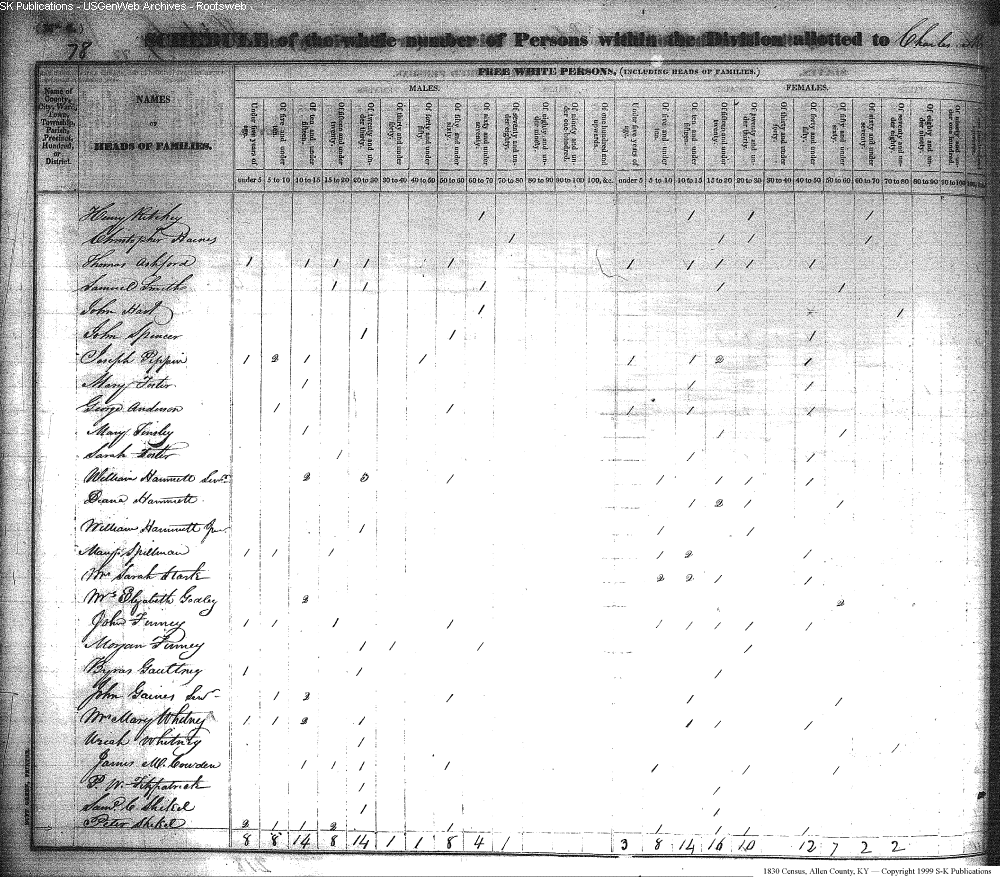 SK Publications - USGenWeb Archives - Rootsweb
78
SCHEDULE of the whole number of Persons within the Division allotted to Charles
FREE WHITE PERSONS, (INCLUDING HEADS OF FAMILIES.)
MALES. FEMALES.
Name of County, City, Ward, Town, Township, Parish, Precinct, Hundred, or District.
NAMES
OF
HEADS OF FAMILIES.
Under five years of age. Of five and under ten. Of ten and under fifteen. Of fifteen and under twenty. Of twenty and under thirty. Of thirty and under forty. Of forty and under fifty. Of fifty and under sixty. Of sixty and under seventy. Of seventy and under eighty. Of eighty and under ninety. Of ninety and under one hundred. Of one hundred and upwards. Under five years of age. Of five and under ten. Of ten and under fifteen. Of fifteen and under twenty. Of twenty and under thirty. Of thirty and under forty. Of forty and under fifty. Of fifty and under sixty. Of sixty and under seventy. Of seventy and under eighty. Of eighty and under ninety. Of ninety and under one hundred.
under 5 5 to 10 10 to 15 15 to 20 20 to 30 30 to 40 40 to 50 50 to 60 60 to 70 70 to 80 80 to 90 90 to 100 100, &c. under 5 5 to 10 10 to 15 15 to 20 20 to 30 30 to 40 40 to 50 50 to 60 60 to 70 70 to 80 80 to 90 90 to 100
Henry Ritchey 1 1 1 1
Christopher Haines 1 1 1 1
Thomas Ashford 1 1 1 1 1 1 1 1 1 1
Samuel Smith 1 1 1 1 1
John Hart 1 1
John Spencer 1 1 1
Joseph Pippin 1 2 1 1 1 1 2 1
Mary Foster 1 1 1
George Anderson 1 1 1 1 1
Mary Tinsley 1 1 1
Sarah Foster 1 1 1
William Hammett Senr 2 1 1 1 1 1
Diana Hammett 1 2 1 1
William Hammett Jr 1 1 1
Mary Spillman 1 1 1 1 2 1
Mrs Sarah Stark 2 2 1 1
Mrs Elizabeth Godley 2 2
John Finney 1 1 1 1 1 1 1 1 1
Morgan Finney 1 1 1 1
Byras Gaultney 1 1 1
John Gaines Senr 1 2 1 1 1
Mrs Mary Whitney 1 1 2 1 1 1 1
Uriah Whitney 1 1
James McCowden 1 1 1 1 1 1 1
P. W. Fitzpatrick 1 1
Saml C Shikel 1 1
Peter Shikel 2 1 1 2 1 1 1 1 1
8 8 14 8 14 1 1 8 4 1 3 8 14 16 10 12 7 2 2
1830 Census, Allen County, KY — Copyright 1999 S-K Publications